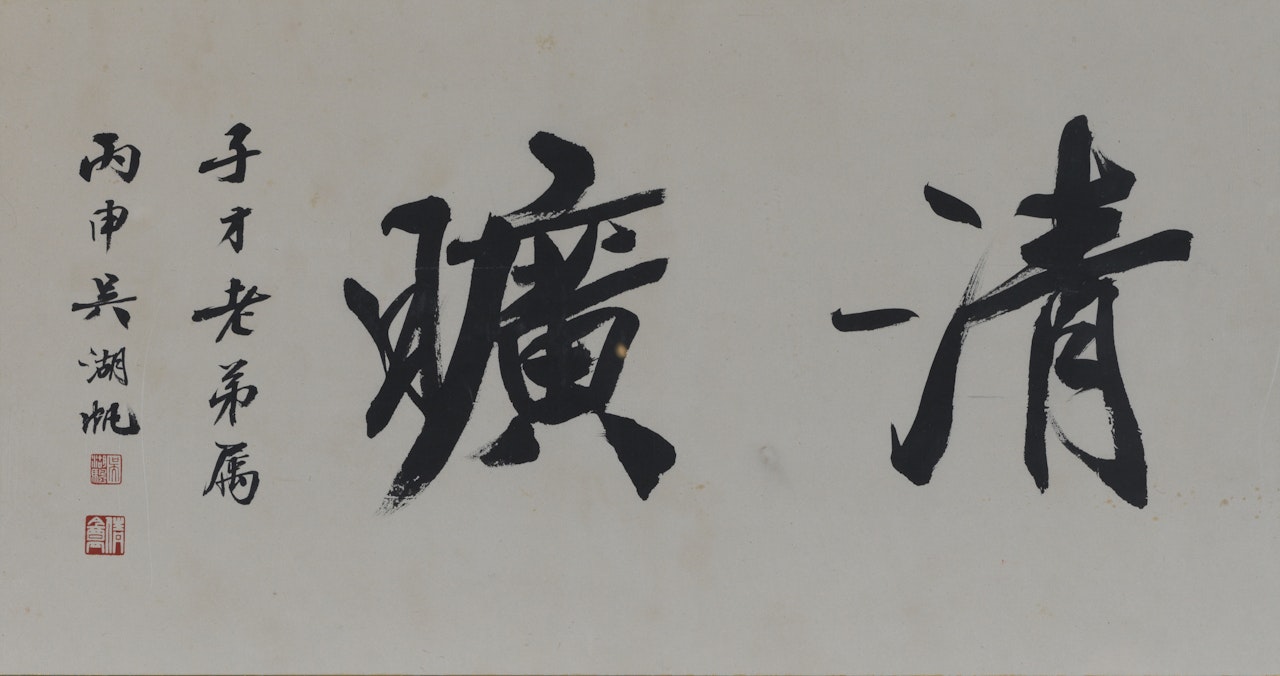 清曠
子才老弟属
丙申吳湖帆